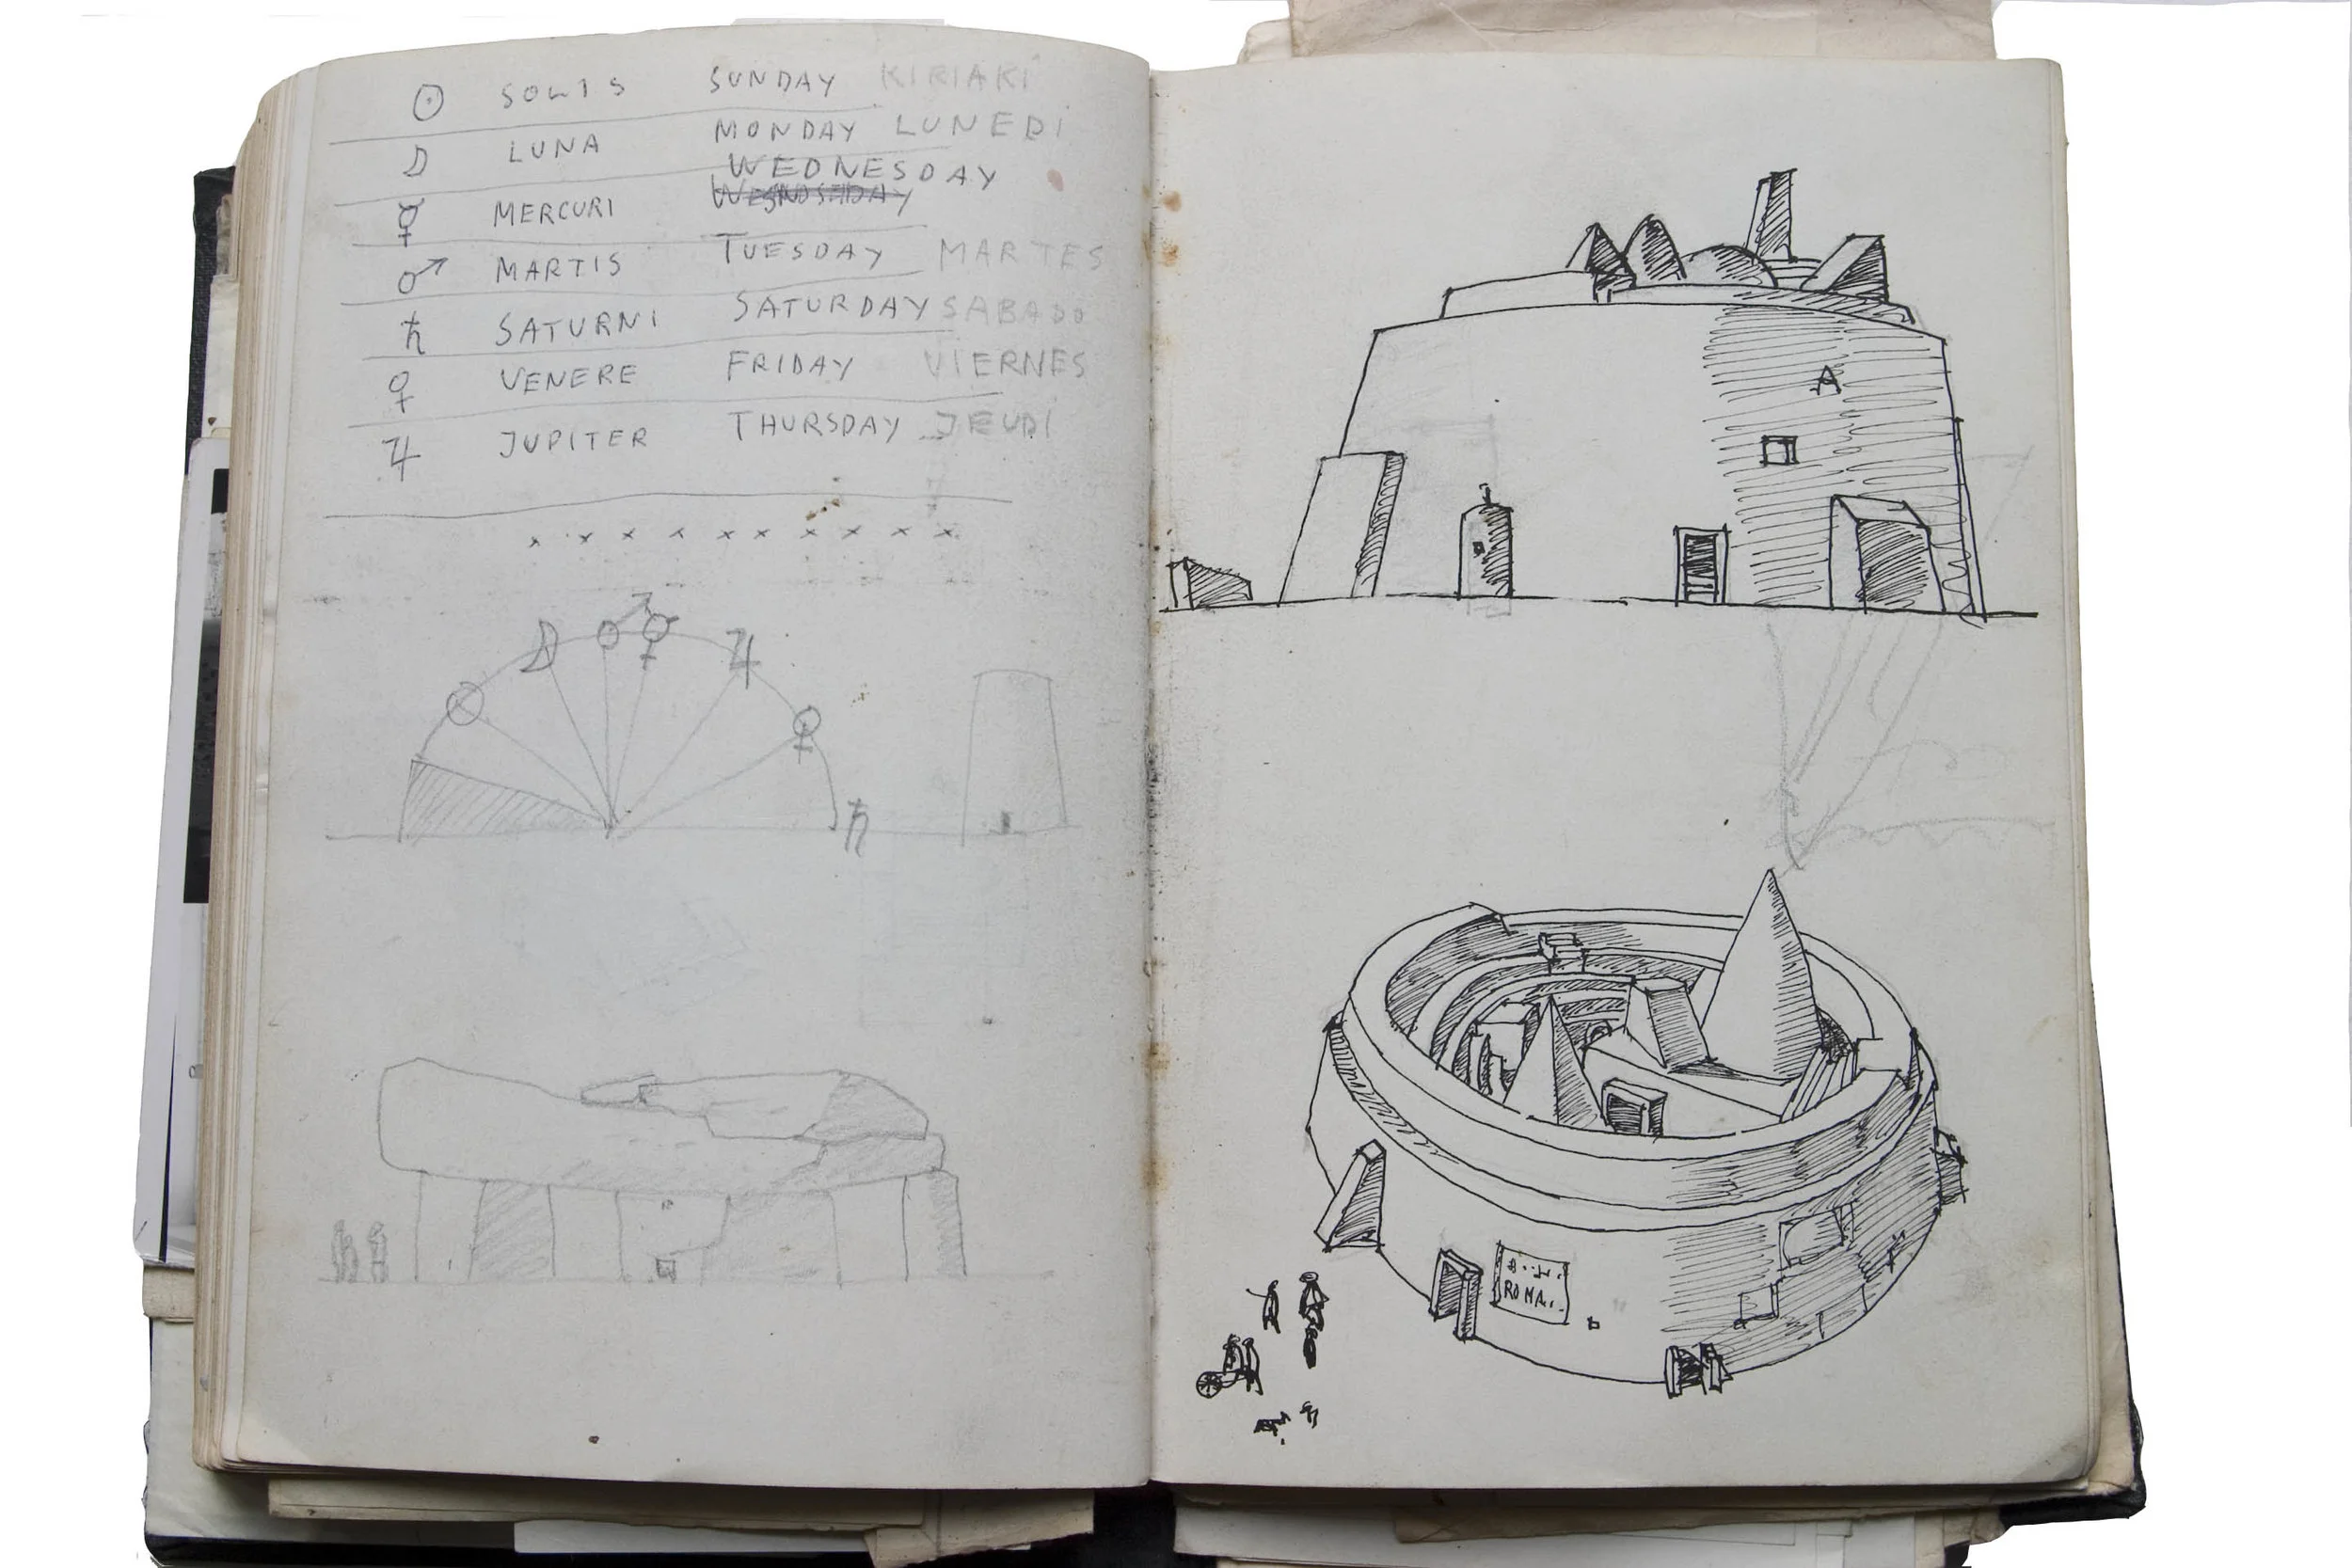 ☉ SOLIS SUNDAY KIRIAKI
☽ LUNA MONDAY LUNEDI
☿ MERCURI WEDNESDAY
♂ MARTIS TUESDAY MARTES
♄ SATURNI SATURDAY SABADO
♀ VENERE FRIDAY VIERNES
♃ JUPITER THURSDAY JEUDI
x x x x x x x x x x
☉ ☽ ♂ ☿ ♃ ♀ ♄
A
ROMA